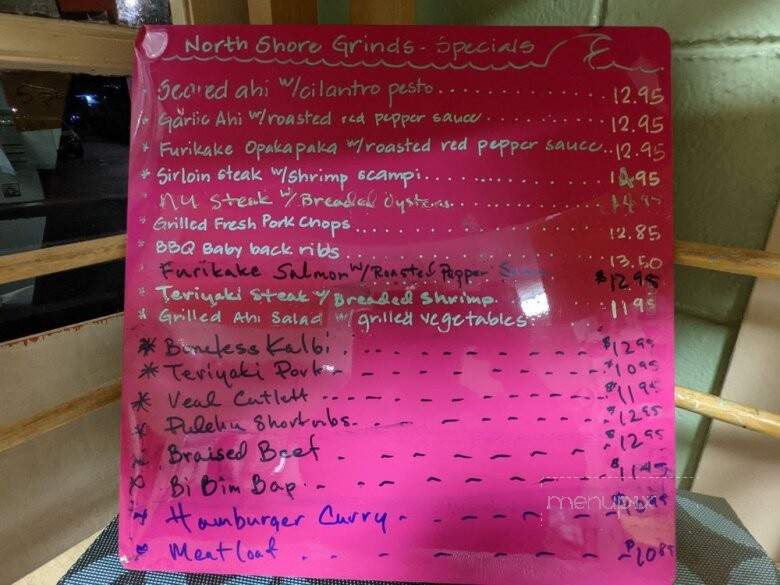 North Shore Grinds - Specials
* Seared ahi w/cilantro pesto 12.95
* Garlic Ahi w/roasted red pepper sauce 12.95
* Furikake Opakapaka w/roasted red pepper sauce 12.95
* Sirloin steak w/shrimp scampi 14.95
* NY Steak w/Breaded Oysters 14.95
* Grilled Fresh Pork Chops 12.85
* BBQ Baby back ribs 13.50
Furikake Salmon w/Roasted Pepper Sauce $12.95
* Teriyaki Steak w/Breaded Shrimp 11.95
* Grilled Ahi Salad w/ grilled vegetables
* Boneless Kalbi $12.95
* Teriyaki Pork $10.95
* Veal Cutlett $11.95
* Pulehu Shortribs $12.95
* Braised Beef $12.95
* Bi Bim Bap $11.45
* Hamburger Curry
* Meatloaf $10.85
menupix